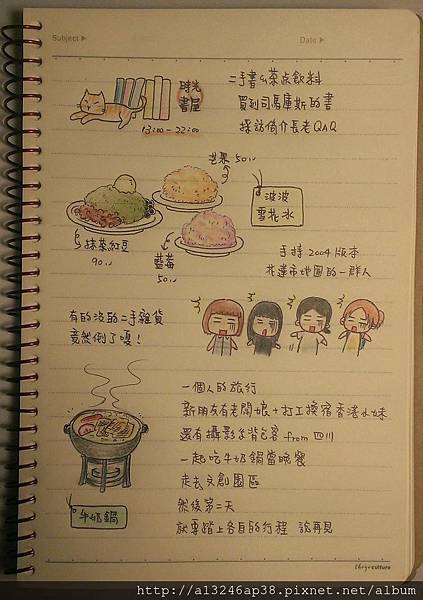 Subject ▶
Date ▶
時光
書屋
13:00 - 22:00
二手書&茶点飲料
買到司馬庫斯的書
採訪倚岕長老QAQ
芒果 50
波波
雪花冰
抹茶紅豆
90
藍莓
50
手持 2004 版本
花蓮市地圖的一群人
有的沒的二手雜貨
竟然倒了嗄!
一個人的旅行
新朋友有老闆娘+打工換宿香港小妹
還有攝影系背包客 from 四川
一起吃牛奶鍋當晚餐
走去文創園區
然後第二天
就要踏上各自的行程 說再見
牛奶鍋
http://a13246ap38.pixnet.net/album